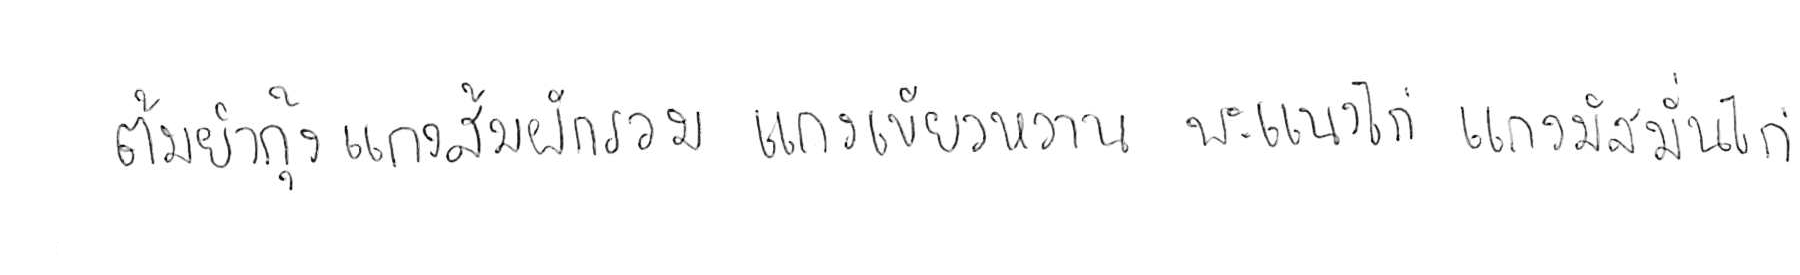 ต้มยำกุ้ง แกงส้มผักรวม แกงเขียวหวาน พะแนงไก่ แกงมัสมั่นไก่